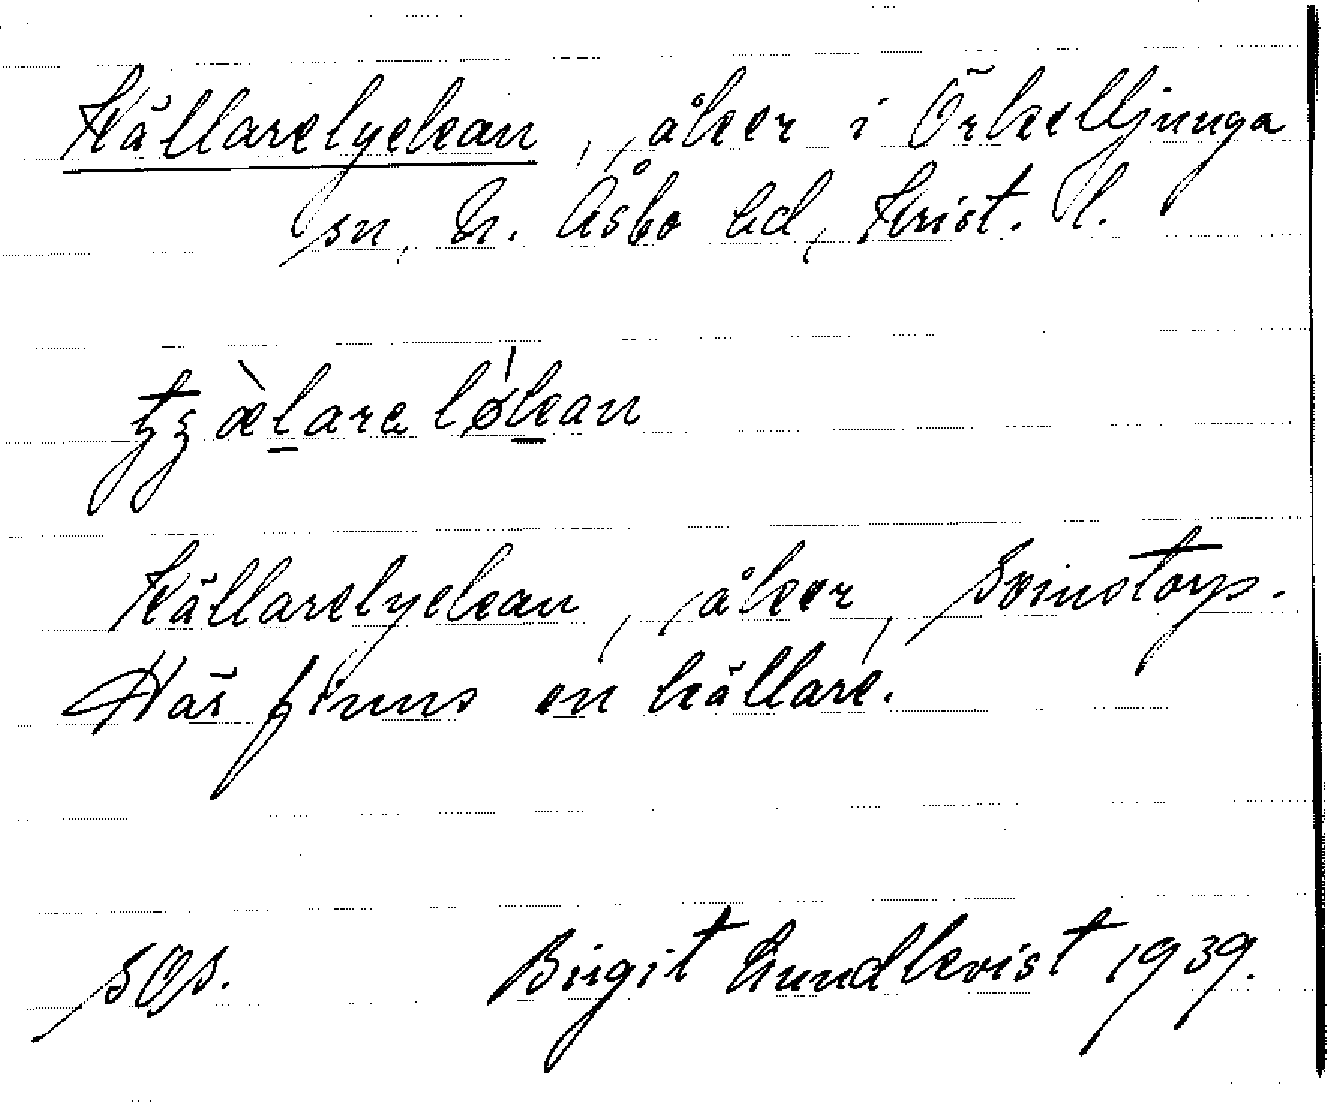 Källarelyckan, åker i Örkelljunga
sn, N. Åsbo hd, Krist. l.
Källarelyckan, åker, Svinstorp.
Här finns en källare.
sås. Birgit Lundkvist 1939.